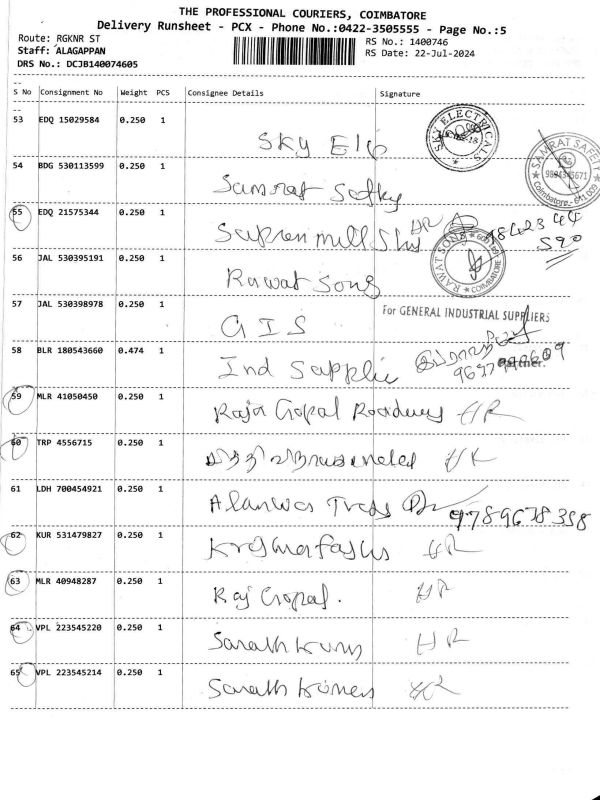 THE PROFESSIONAL COURIERS, COIMBATORE
Delivery Runsheet - PCX - Phone No.:0422-3505555 - Page No.:5
Route: RGKNR ST
Staff: ALAGAPPAN
DRS No.: DCJB140074605
RS No.: 1400746
RS Date: 22-Jul-2024
S No Consignment No Weight PCS Consignee Details Signature
53 EDQ 15029584 0.250 1 Sky Ele
SKY ELECTRICALS
54 BDG 530113599 0.250 1 Samrat Safty
SAMRAT SAFETY
9894345671
Coimbatore
55 EDQ 21575344 0.250 1 mill
98423 44
590
56 JAL 530395191 0.250 1 Rawat Song
RAWAT SONS
COIMBATORE
57 JAL 530398978 0.250 1 GIS
For GENERAL INDUSTRIAL SUPPLIERS
58 BLR 180543660 0.474 1 Ind Supplie
Partner.
59 MLR 41050450 0.250 1 Raja Gopal Roadways HR
60 TRP 4556715 0.250 1
61 LDH 700454921 0.250 1 Alankar
9789678358
62 KUR 531479827 0.250 1 HR
63 MLR 40948287 0.250 1 Raj Gopal. HR
64 VPL 223545220 0.250 1 Sarath HR
65 VPL 223545214 0.250 1 Sarath HR